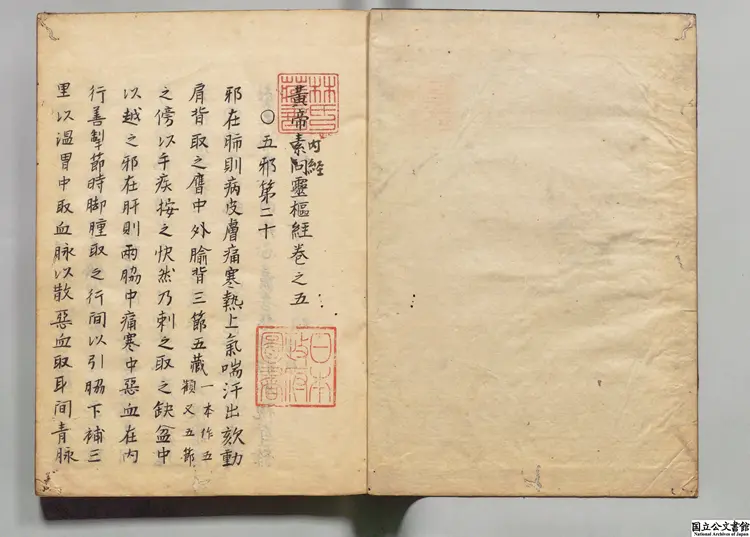 黃帝素問靈樞經卷之五
内経
〇五邪第二十
邪在肺則病皮膚痛寒熱上氣喘汗出欬動
肩背取之膺中外腧背三節五藏一本作五
顀又五節
之傍以手疾按之快然乃刺之取之缺盆中
以越之邪在肝則兩脇中痛寒中惡血在内
行善掣節時脚腫取之行間以引脇下補三
里以温胃中取血脉以散惡血取耳間青脉
林氏藏書
日本政府圖書
国立公文書館
National Archives of Japan